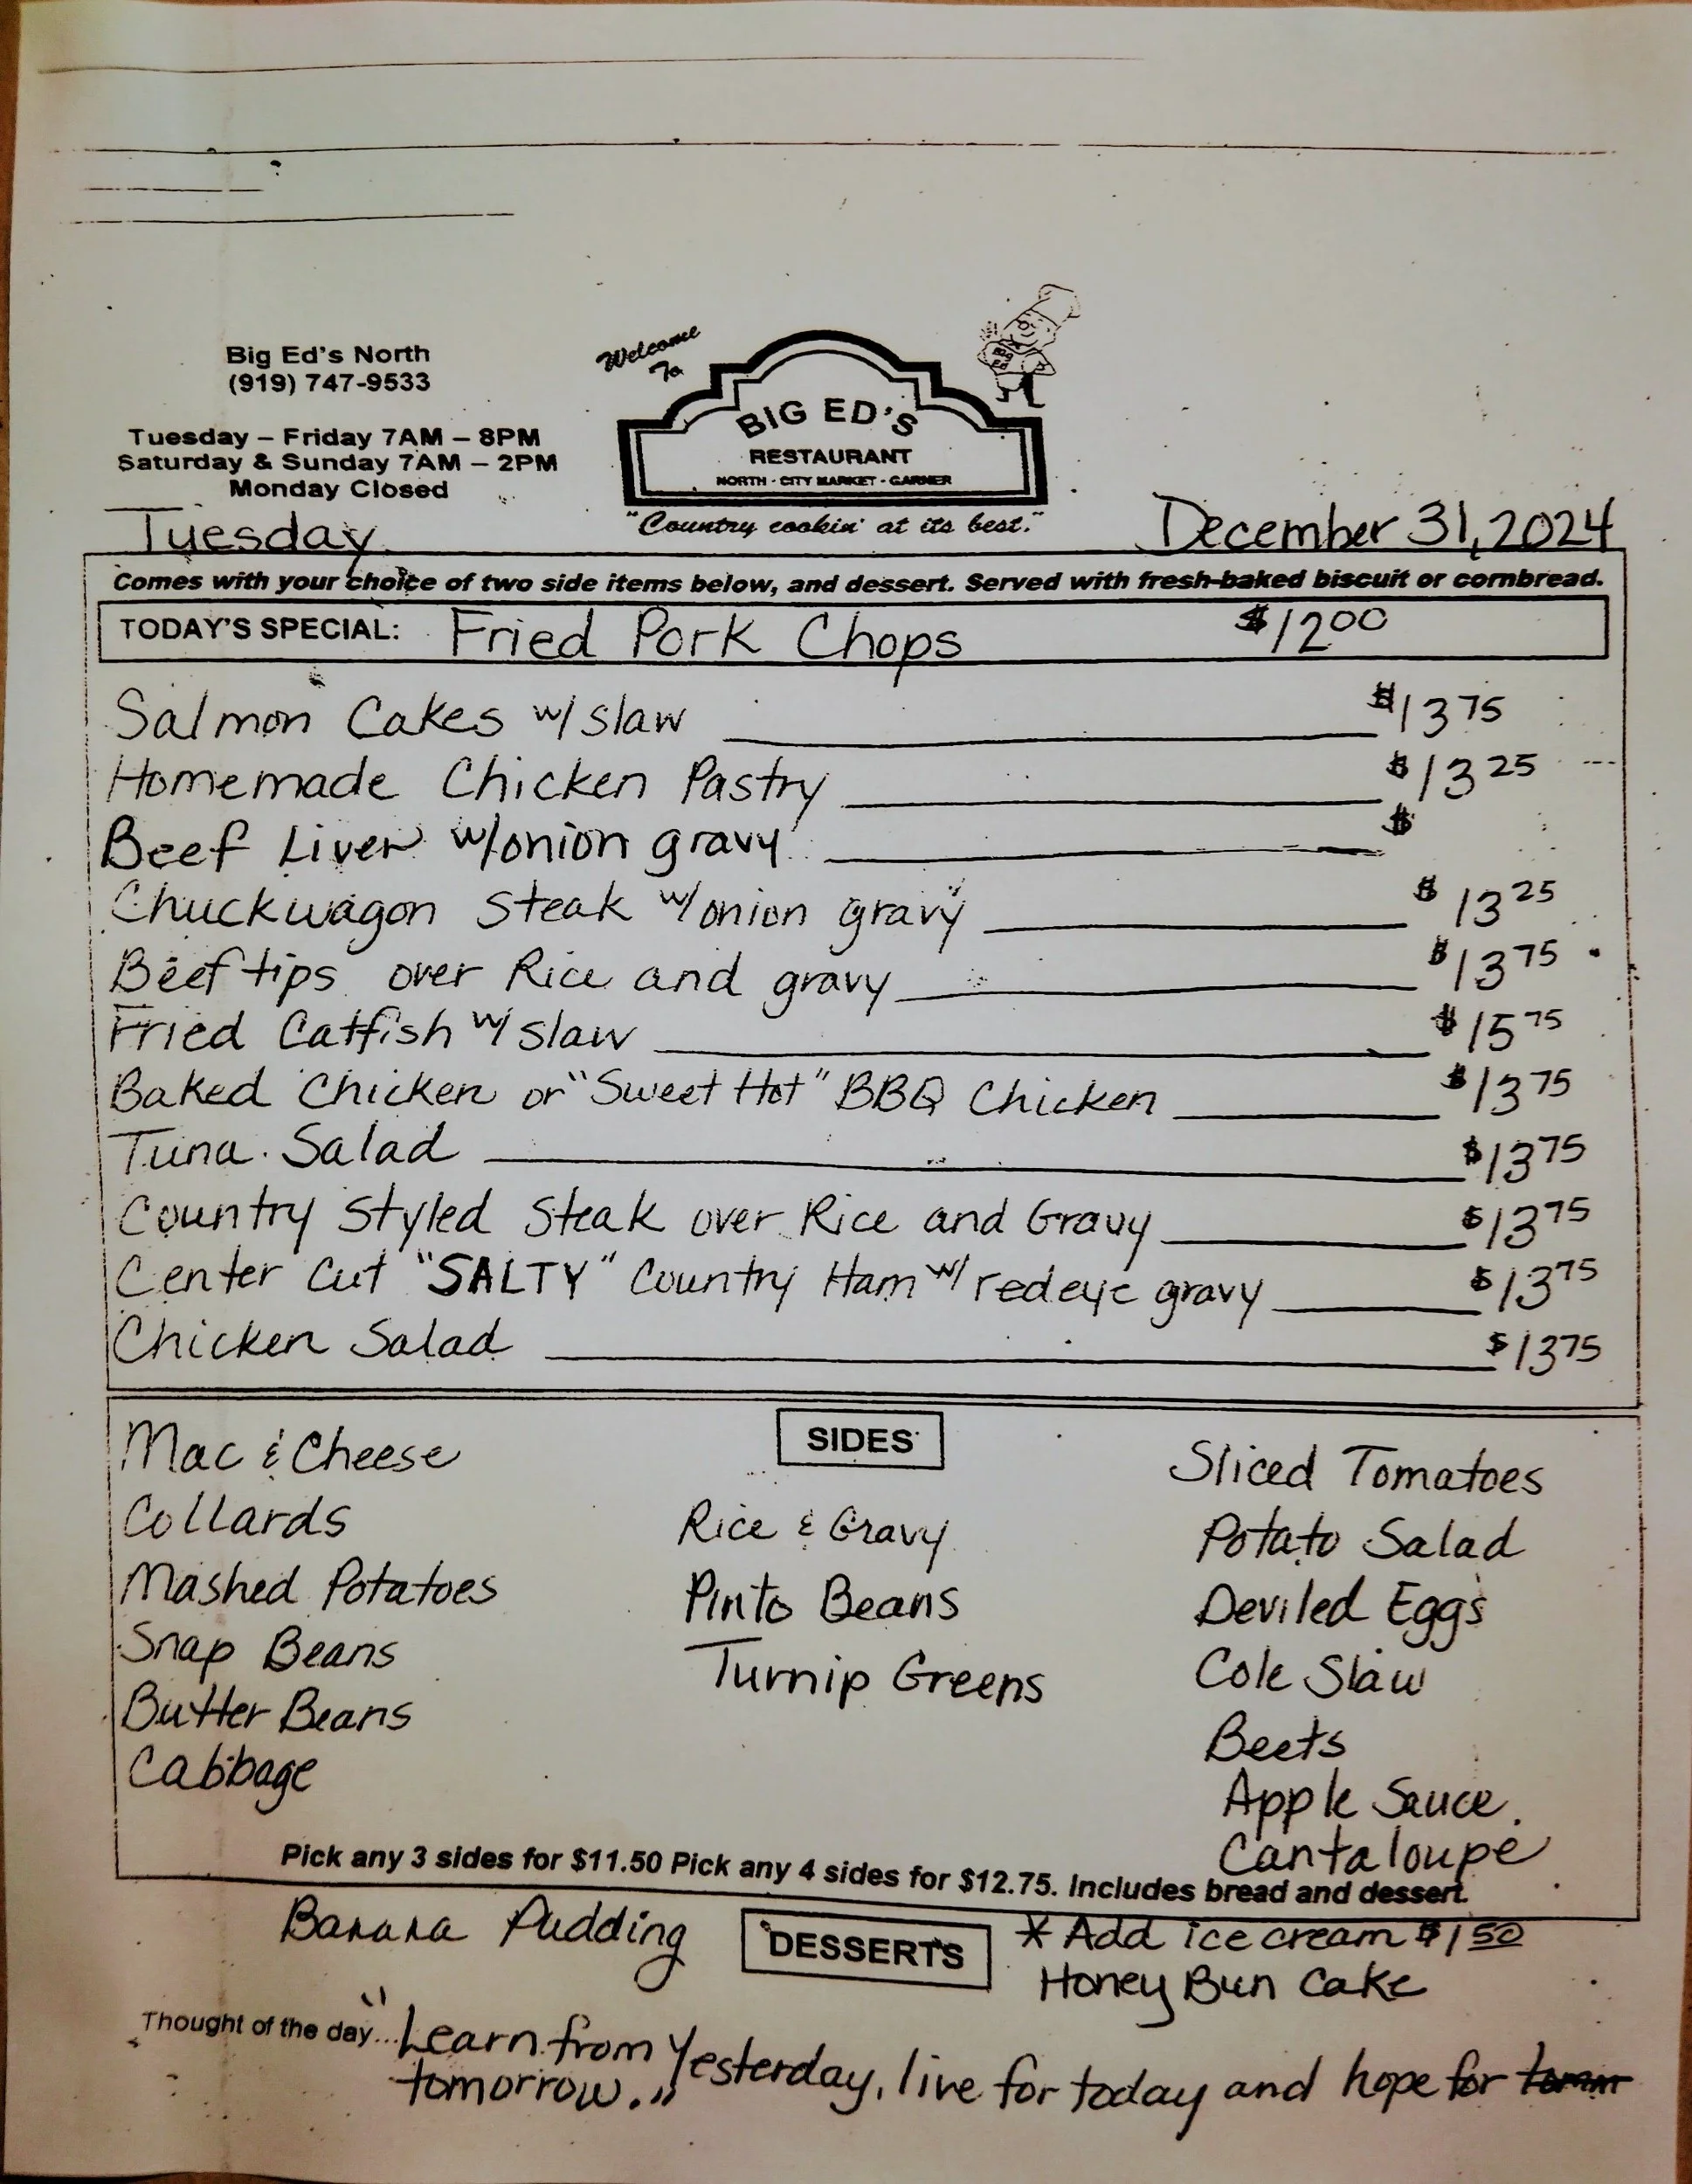 Big Ed's North
(919) 747-9533
Tuesday – Friday 7AM – 8PM
Saturday & Sunday 7AM – 2PM
Monday Closed
Welcome
To
BIG ED'S
RESTAURANT
NORTH - CITY MARKET - GARNER
"Country cookin' at its best."
Tuesday
December 31, 2024
Comes with your choice of two side items below, and dessert. Served with fresh-baked biscuit or cornbread.
TODAY'S SPECIAL: Fried Pork Chops $12 00
Salmon Cakes w/ slaw $13 75
Homemade Chicken Pastry $13 25
Beef Liver w/onion gravy $
Chuckwagon Steak w/onion gravy $13 25
Beef tips over Rice and gravy $13 75
Fried Catfish w/ slaw $15 75
Baked Chicken or "Sweet Hot" BBQ Chicken $13 75
Tuna Salad $13 75
Country Styled Steak over Rice and Gravy $13 75
Center Cut "SALTY" Country Ham w/ redeye gravy $13 75
Chicken Salad $13 75
SIDES
Mac & Cheese
Collards
Mashed Potatoes
Snap Beans
Butter Beans
Cabbage
Rice & Gravy
Pinto Beans
Turnip Greens
Sliced Tomatoes
Potato Salad
Deviled Eggs
Cole Slaw
Beets
Apple Sauce
Cantaloupe
Pick any 3 sides for $11.50 Pick any 4 sides for $12.75. Includes bread and dessert.
DESSERTS
Banana Pudding
* Add ice cream $1 50
Honey Bun Cake
Thought of the day... "Learn from Yesterday, live for today and hope for
tomorrow."